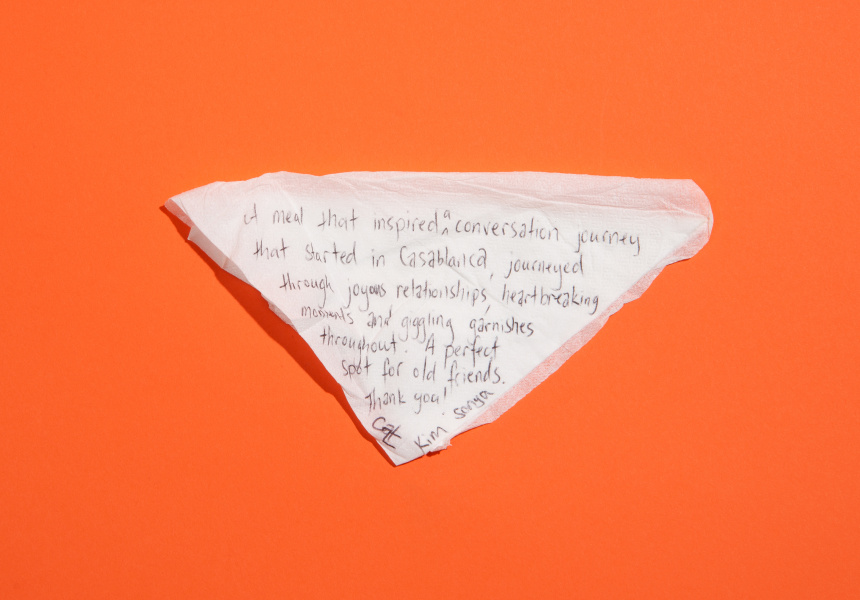 A meal that inspired a conversation journey
that started in Casablanca, journeyed
through joyous relationships, heartbreaking
moments and giggling garnishes
throughout. A perfect
spot for old friends.
Thank you!
Cat Kim Sonya